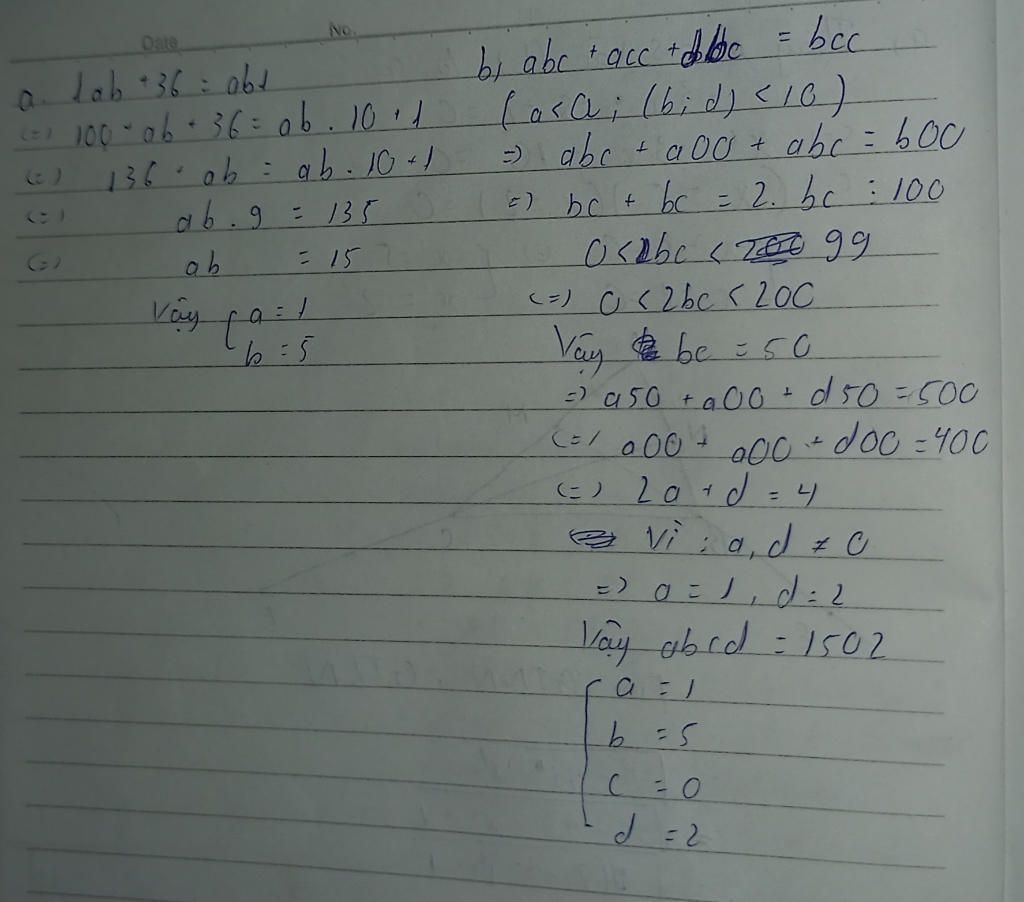 Date
No.
a. 1ab + 36 = ab1
(=) 100 + ab + 36 = ab . 10 + 1
(=) 136 + ab = ab . 10 + 1
(=) ab . 9 = 135
(=) ab = 15
Vậy { a = 1
b = 5
b, abc + acc + dbc = bcc
(a<a; (b; d) < 10)
=) abc + a00 + abc = b00
=) bc + bc = 2. bc ⋮ 100
0 < bc < 99
(=) 0 < 2bc < 200
Vậy bc = 50
=) a50 + a00 + d50 = 500
(=) a00 + a00 + d00 = 400
(=) 2a + d = 4
Vì : a, d ≠ 0
=) a = 1, d = 2
Vậy abcd = 1502
a = 1
b = 5
c = 0
d = 2